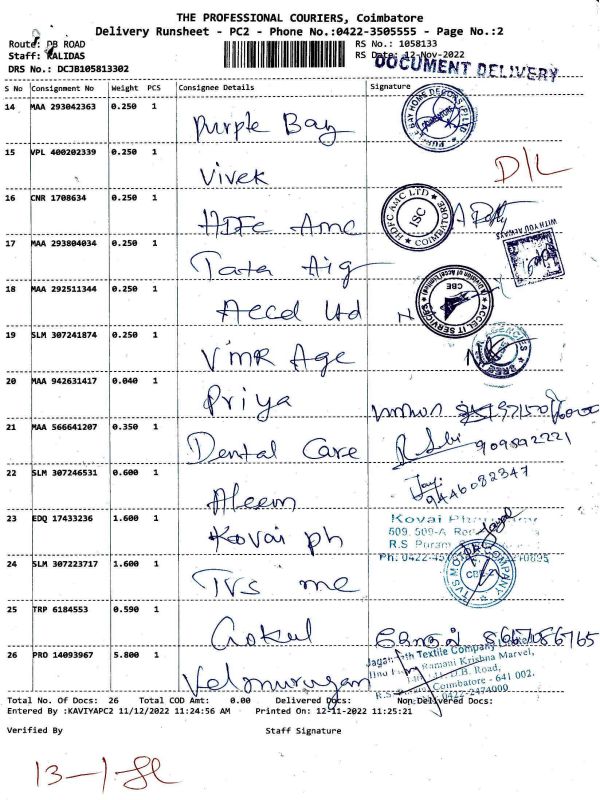 THE PROFESSIONAL COURIERS, Coimbatore
Delivery Runsheet - PC2 - Phone No.:0422-3505555 - Page No.:2
Route: PB ROAD
RS No.: 1058133
Staff: KALIDAS
RS Date: 12-Nov-2022
DRS No.: DCJB105813302
DOCUMENT DELIVERY
S No Consignment No Weight PCS Consignee Details Signature
14 MAA 293042363 0.250 1 Purple Bay
15 VPL 400202339 0.250 1 Vivek D/L
16 CNR 1708634 0.250 1 HDFC Amc
HDFC AMC LTD COIMBATORE ISC
17 MAA 293804034 0.250 1 Tata Aig
WITH YOU ALWAYS
18 MAA 292511344 0.250 1 Accel Ltd
ACCEL IT SERVICES CBE
19 SLM 307241874 0.250 1 VMR Age
20 MAA 942631417 0.040 1 Priya
21 MAA 566641207 0.350 1 Dental Care
22 SLM 307246531 0.600 1 Aleem 9446082347
23 EDQ 17433236 1.600 1 Kovai ph
Kovai
509, 509-A
R.S Puram
24 SLM 307223717 1.600 1 TVS mc
TVS MOTOR COMPANY
25 TRP 6184553 0.590 1 Gokul கோகுல் 8667086765
26 PRO 14093967 5.800 1 Velmurugan
Textile Company
Ramani Krishna Marvel,
D.B. Road,
Coimbatore - 641 002.
0422-2474000
Total No. Of Docs: 26 Total COD Amt: 0.00 Delivered Docs: Non Delivered Docs:
Entered By :KAVIYAPC2 11/12/2022 11:24:56 AM Printed On: 12-11-2022 11:25:21
Verified By Staff Signature